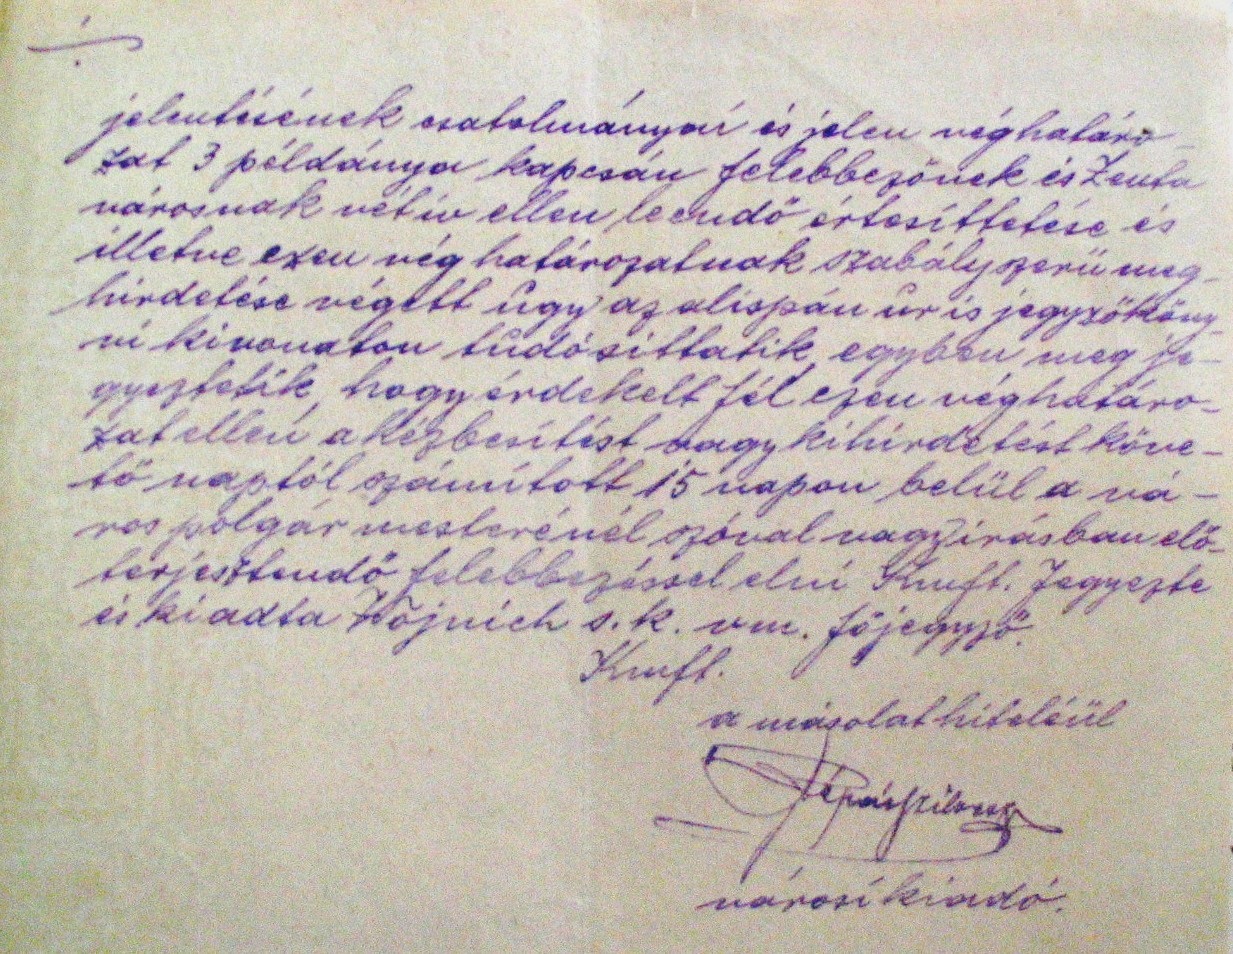 jelentésének csatolmányai és jelen véghatáro-
zat 3 példánya kapcsán felebbezőnek és Zenta
városnak vétív ellen leendő értesíttetése és
illetve ezen véghatározatnak szabályszerű meg-
hirdetése végett úgy az alispán úr is jegyzőköny-
vi kivonaton tudósíttatik egyben meg je-
gyeztetik, hogy érdekelt fél ezen véghatáro-
zat ellen a kézbesítést vagy kihirdetést köve-
tő naptól számított 15 napon belül a vá-
ros polgármesterénél szóval vagy írásban elő-
terjesztendő felebbezéssel élni Kmft. Jegyezte
és kiadta Vojnich s.k. vm. főjegyző.
Kmft.
a másolat hiteléül
városi kiadó.